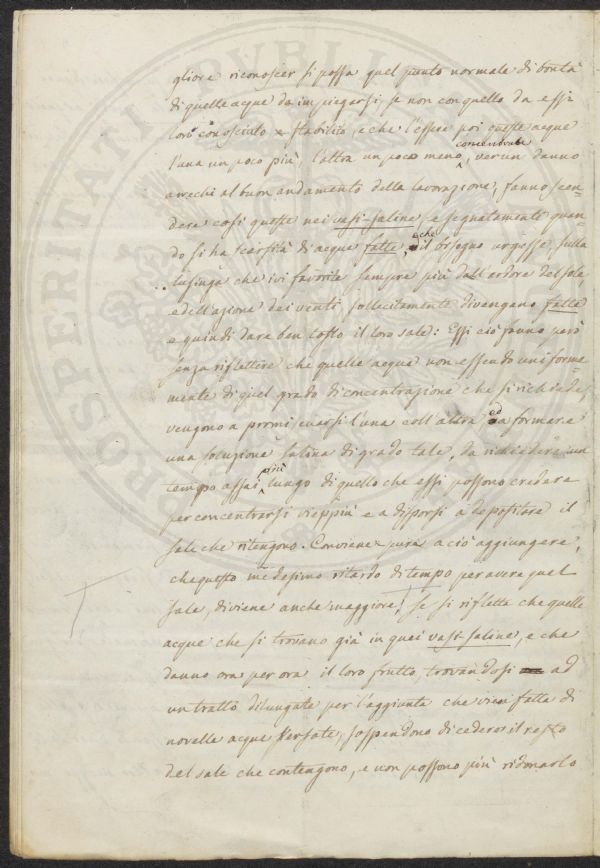 gliore riconoscer si possa quel punto normale di bontà
di quelle acque da impiegarsi se non con quello da essi
loro conosciuto e stabilito, e che l'essere poi queste acque
l'una un poco più, l'altra un poco meno concentrate, verun danno
arrechi al buon andamento della lavorazione, fanno scen-
dere così queste nei vasi-saline, e segnatamente quan-
do si ha scarsità di acque fatte, che il bisogno urgesse, sulla
lusinga che ivi favorite sempre più dall'ardore del sole,
e dell'azione dei venti, sollecitamente divengano fatte
e quindi dare ben tosto il loro sale: Essi ciò fanno però
senza riflettere che quelle acque non essendo uniforme-
mente di quel grado di concentrazione che si richiede,
vengono a promiscuarsi l'una coll'altra ed a formare
una soluzione salina di grado tale, da richiedere un
tempo assai più lungo di quello che essi possono credere
per concentrarsi vieppiù e a disporsi a depositare il
sale che ritengono. Conviene pure a ciò aggiungere,
che questo medesimo ritardo di tempo per avere quel
sale, diviene anche maggiore, se si riflette che quelle
acque che si trovano già in quei vasi-saline, e che
danno ora per ora il loro frutto, trovandosi ad
un tratto dilungate per l'aggiunta che vien fatta di
novelle acque versate, sospendono di cedere il resto
del sale che contengono, e non possono più ridonarlo